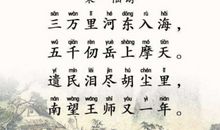 sān wàn lǐ hé dōng rù hǎi
三万里河东入海，
wǔ qiān rèn yuè shàng mó tiān
五千仞岳上摩天。
yí mín lèi jìn hú chén lǐ
遗民泪尽胡尘里，
nán wàng wáng shī yòu yì nián
南望王师又一年。